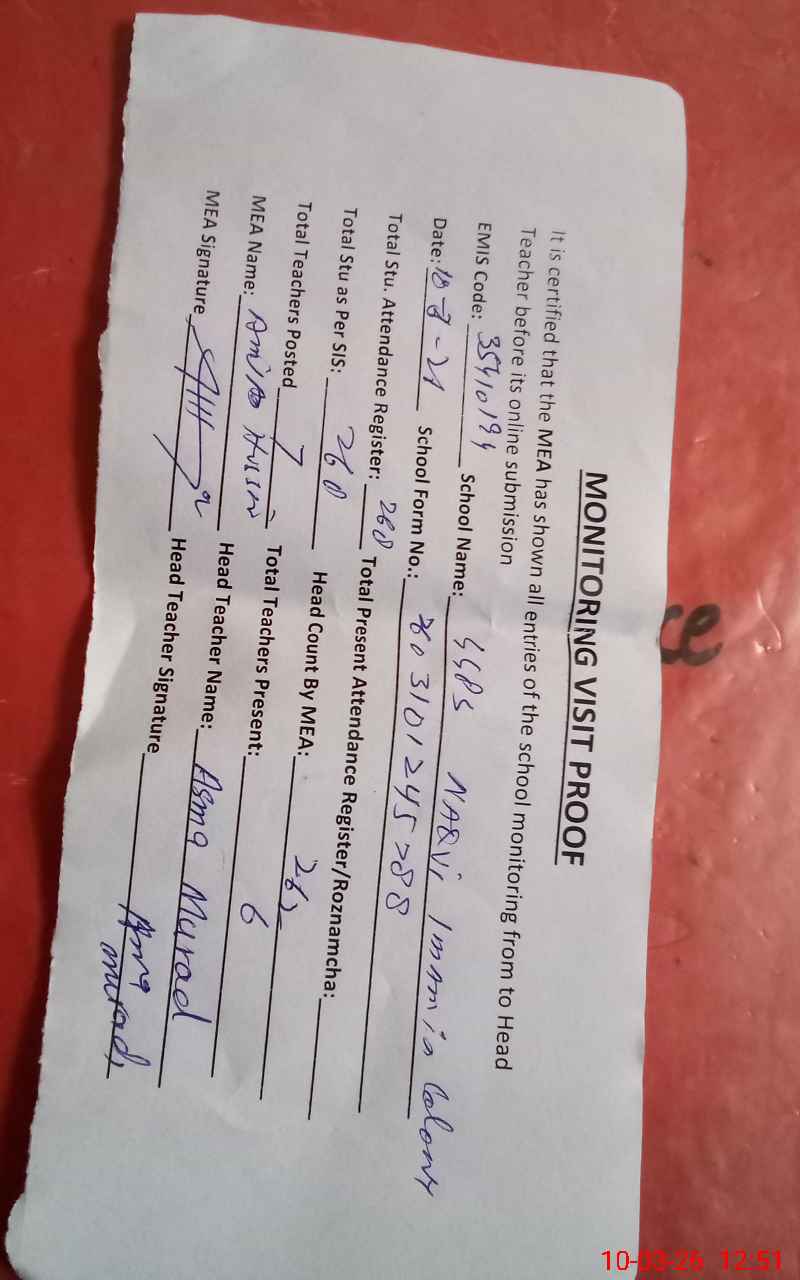 MONITORING VISIT PROOF
It is certified that the MEA has shown all entries of the school monitoring from to Head
Teacher before its online submission
EMIS Code: 35410194 School Name: GGPS NAQVi Imamia Colony
Date: School Form No.:
Total Stu. Attendance Register: 268 Total Present Attendance Register/Roznamcha:
Total Stu as Per SIS: 268 Head Count By MEA: 262
Total Teachers Posted 7 Total Teachers Present: 6
MEA Name: Head Teacher Name: Asma Murad
MEA Signature Head Teacher Signature Asma
murad
10-03-26 12:51